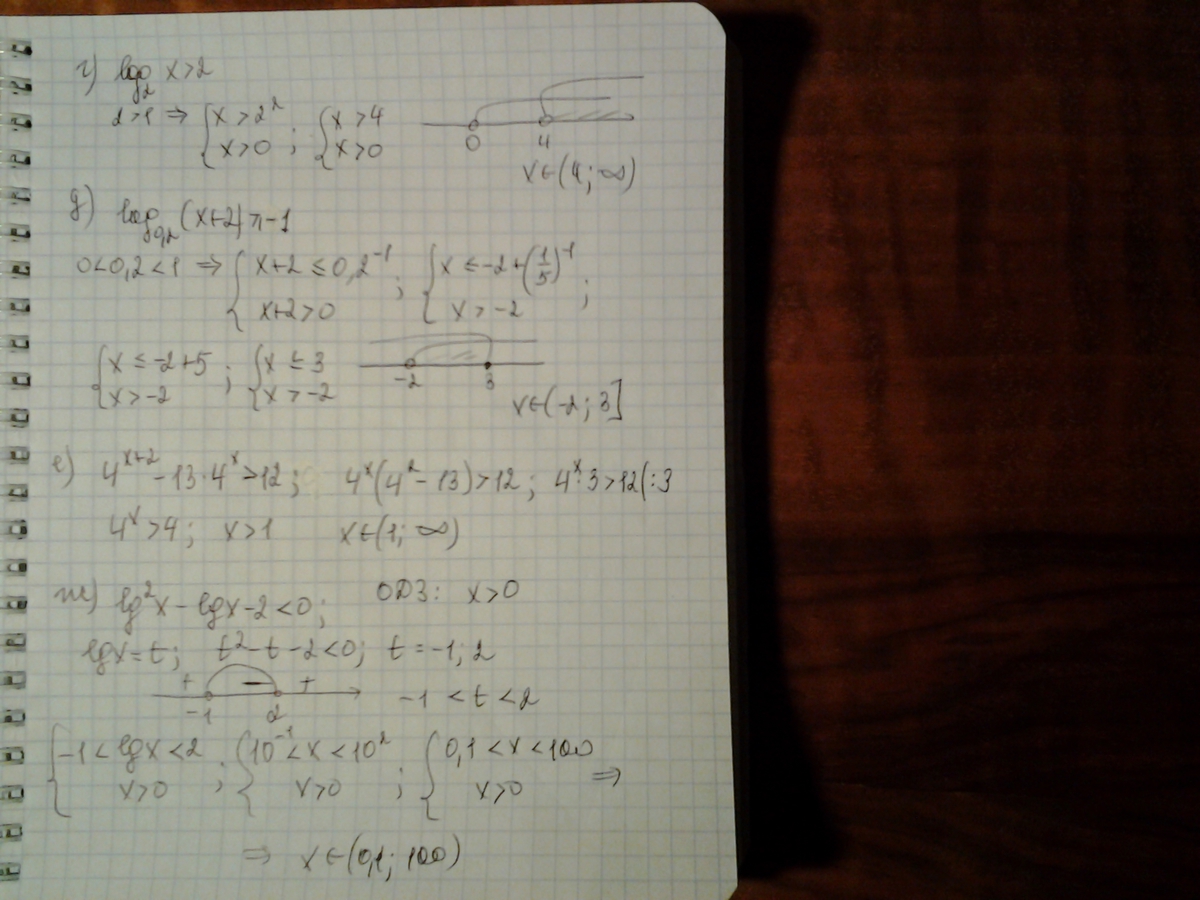 г) log₂ x>2
2>1 ⇒ {x>2² x>0 ; {x>4 x>0
0 4
x∈(4; ∞)
д) log₀,₂(x+2)≥-1
0<0,2<1 ⇒ {x+2≤0,2⁻¹ x+2>0 ; {x≤-2+(1/5)⁻¹ x>-2 ;
{x≤-2+5 x>-2 ; {x≤3 x>-2
-2 3
x∈(-2; 3]
е) 4ˣ⁺²-13·4ˣ>12; 4ˣ(4²-13)>12; 4ˣ·3>12(:3
4ˣ>4; x>1 x∈(1; ∞)
ж) lg²x-lgx-2<0; ОДЗ: x>0
lgx=t; t²-t-2<0; t=-1; 2
+ - +
-1 2
-1<t<2
{-1<lgx<2 x>0 ; {10⁻¹<x<10² x>0 ; {0,1<x<100 x>0 ⇒
⇒ x∈(0,1; 100)